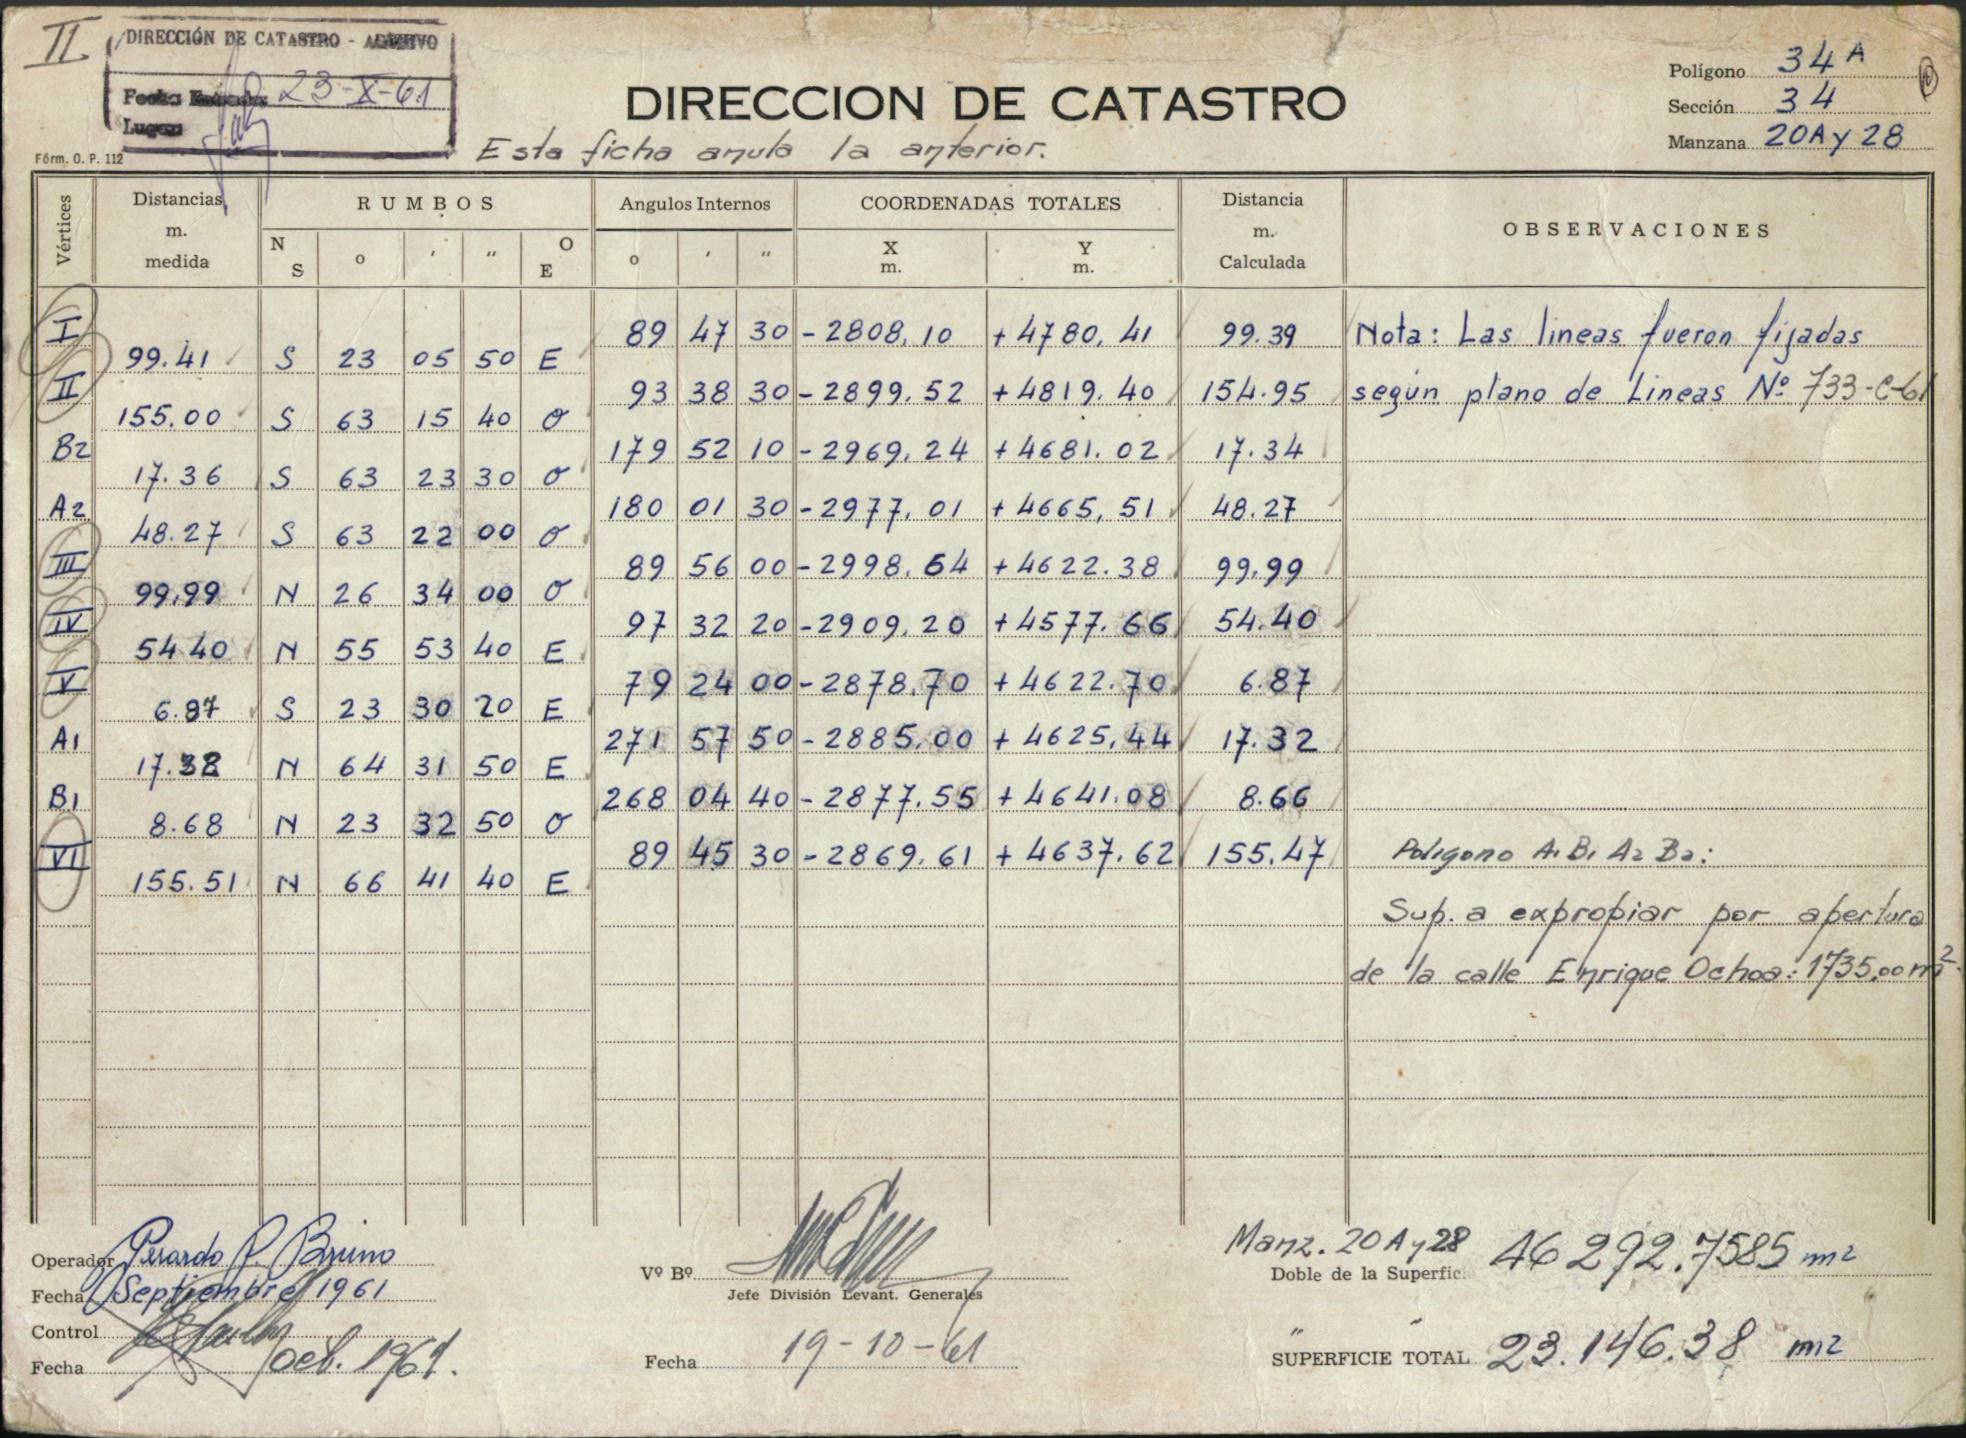 II
DIRECCIÓN DE CATASTRO - ARCHIVO
Fecha 23-X-61
Lugar
Fórm. O. P. 112
DIRECCION DE CATASTRO
Esta ficha anula la anterior.
Polígono 34 A
Sección 34
Manzana 20A y 28
Vértices
Distancias m. medida
RUMBOS
N S o ' " O E
Angulos Internos
o ' "
COORDENADAS TOTALES
X m. Y m.
Distancia m. Calculada
OBSERVACIONES
I 89 47 30 -2808,10 +4780,41 99.39 Nota: Las lineas fueron fijadas
99.41 S 23 05 50 E
II 93 38 30 -2899,52 +4819.40 154.95 según plano de Lineas Nº 733-C-61
155.00 S 63 15 40 O
B2 179 52 10 -2969,24 +4681.02 17.34
17.36 S 63 23 30 O
A2 180 01 30 -2977,01 +4665,51 48.27
48.27 S 63 22 00 O
III 89 56 00 -2998,64 +4622.38 99.99
99.99 N 26 34 00 O
IV 97 32 20 -2909,20 +4577.66 54.40
54.40 N 55 53 40 E
V 79 24 00 -2878,70 +4622.70 6.87
6.87 S 23 30 20 E
A1 271 57 50 -2885,00 +4625,44 17.32
17.32 N 64 31 50 E
B1 268 04 40 -2877.55 +4641.08 8.66
8.68 N 23 32 50 O
VI 89 45 30 -2869,61 +4637.62 155.47 Poligono A1 B1 A2 B2:
155.51 N 66 41 40 E
Sup. a expropiar por apertura
de la calle Enrique Ochoa: 1735,00 m2.
Operador Bruno
Fecha Septiembre 1961
Control
Fecha oct. 1961.
Vº Bº
Jefe División Levant. Generales
Fecha 19-10-61
Manz. 20 A y 28
Doble de la Superfic. 46292.7585 m2
" "
SUPERFICIE TOTAL 23.146.38 m2